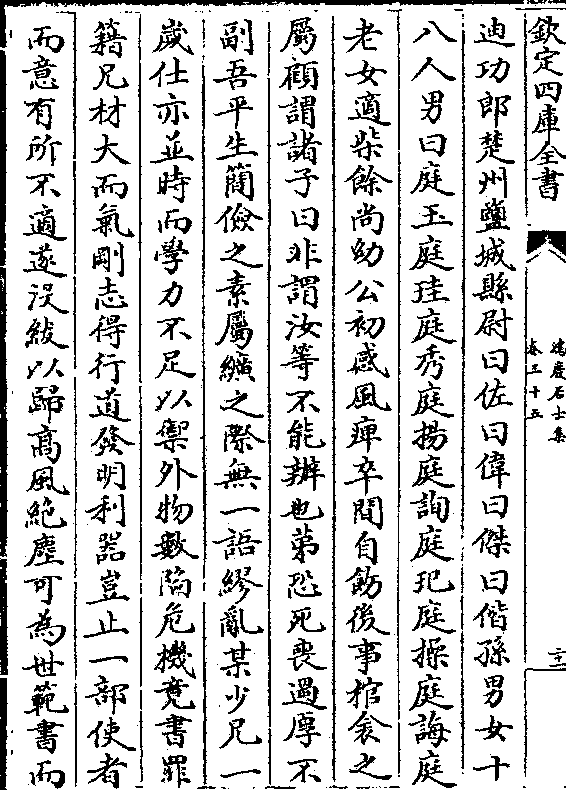 欽定四庫全書
鴻慶居士集
卷三十五
二十一
迪功郎楚州鹽城縣尉曰佐曰偉曰傑曰偕孫男女十
八人男曰庭玉庭珪庭秀庭揚庭詢庭玘庭操庭誨庭
老女適柴餘尚幼公初感風痺卒間自飭後事棺衾之
屬顧謂諸子曰非謂汝等不能辦也第恐死喪過厚不
副吾平生簡儉之素屬纊之際無一語繆亂某少兄一
歲仕亦並時而學力不足以禦外物數陷危機竟書罪
籍兄材大而氣剛志得行道發明利器豈止一部使者
而意有所不適遂沒紱以歸高風絶塵可為世範書而